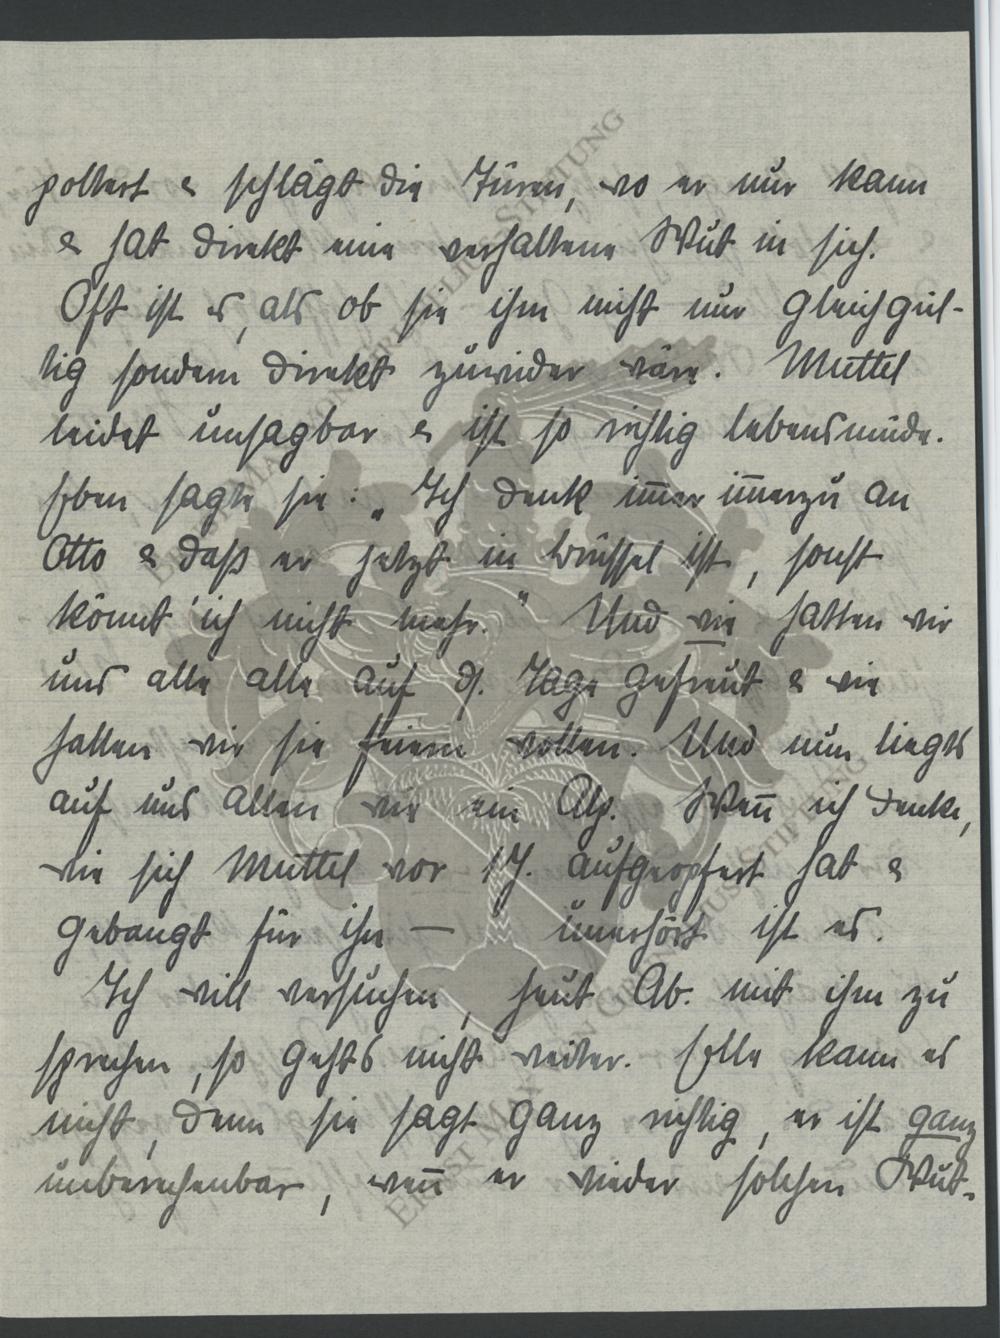 poltert & schlägt die Türen, wo er nur kann
& hat direkt eine verhaltene Wut in sich.
Oft ist es, als ob sie ihm nicht nur gleichgül-
tig sondern direkt zuwider wäre. Muttel
leidet unsagbar & ist so richtig lebensmüde.
Eben sagte sie: „Ich denk im̄er im̄erzu an
Otto & daß er jetzt in Brüssel ist, sonst
könnt' ich nicht mehr." Und wie hatten wir
uns alle alle auf d. Tage gefreut & wie
hatten wir sie feiern wollen. Und nun liegts
auf uns allen wie ein Alp. Wen̄ ich denke,
wie sich Muttel vor 1 J. aufgeopfert hat &
gebangt für ihn — unerhört ist es.
Ich will versuchen, heut Ab. mit ihm zu
sprechen, so gehts nicht weiter. Elle kann es
nicht, denn sie sagt ganz richtig, er ist ganz
unberechenbar, wen̄ er wieder solchen Wut-
ERNST MAX VON GRUNELIUS-STIFTUNG
ERNST MAX VON GRUNELIUS-STIFTUNG